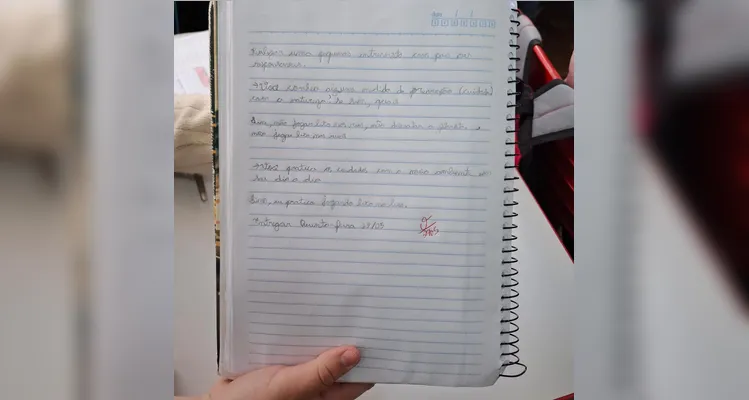 Realizar uma pequena entrevista com pai ou
responsavel.
Você conhece alguma medida de preservação (cuidado)
com a natureza? Se sim, qual
Sim, não jogar lixo em rios, não desmatar a floresta e
não jogar lixo nas ruas
Você pratica os cuidados com o meio ambiente em
seu dia a dia
Sim, eu pratico jogando lixo no lixo.
Entregar Quinta-feira